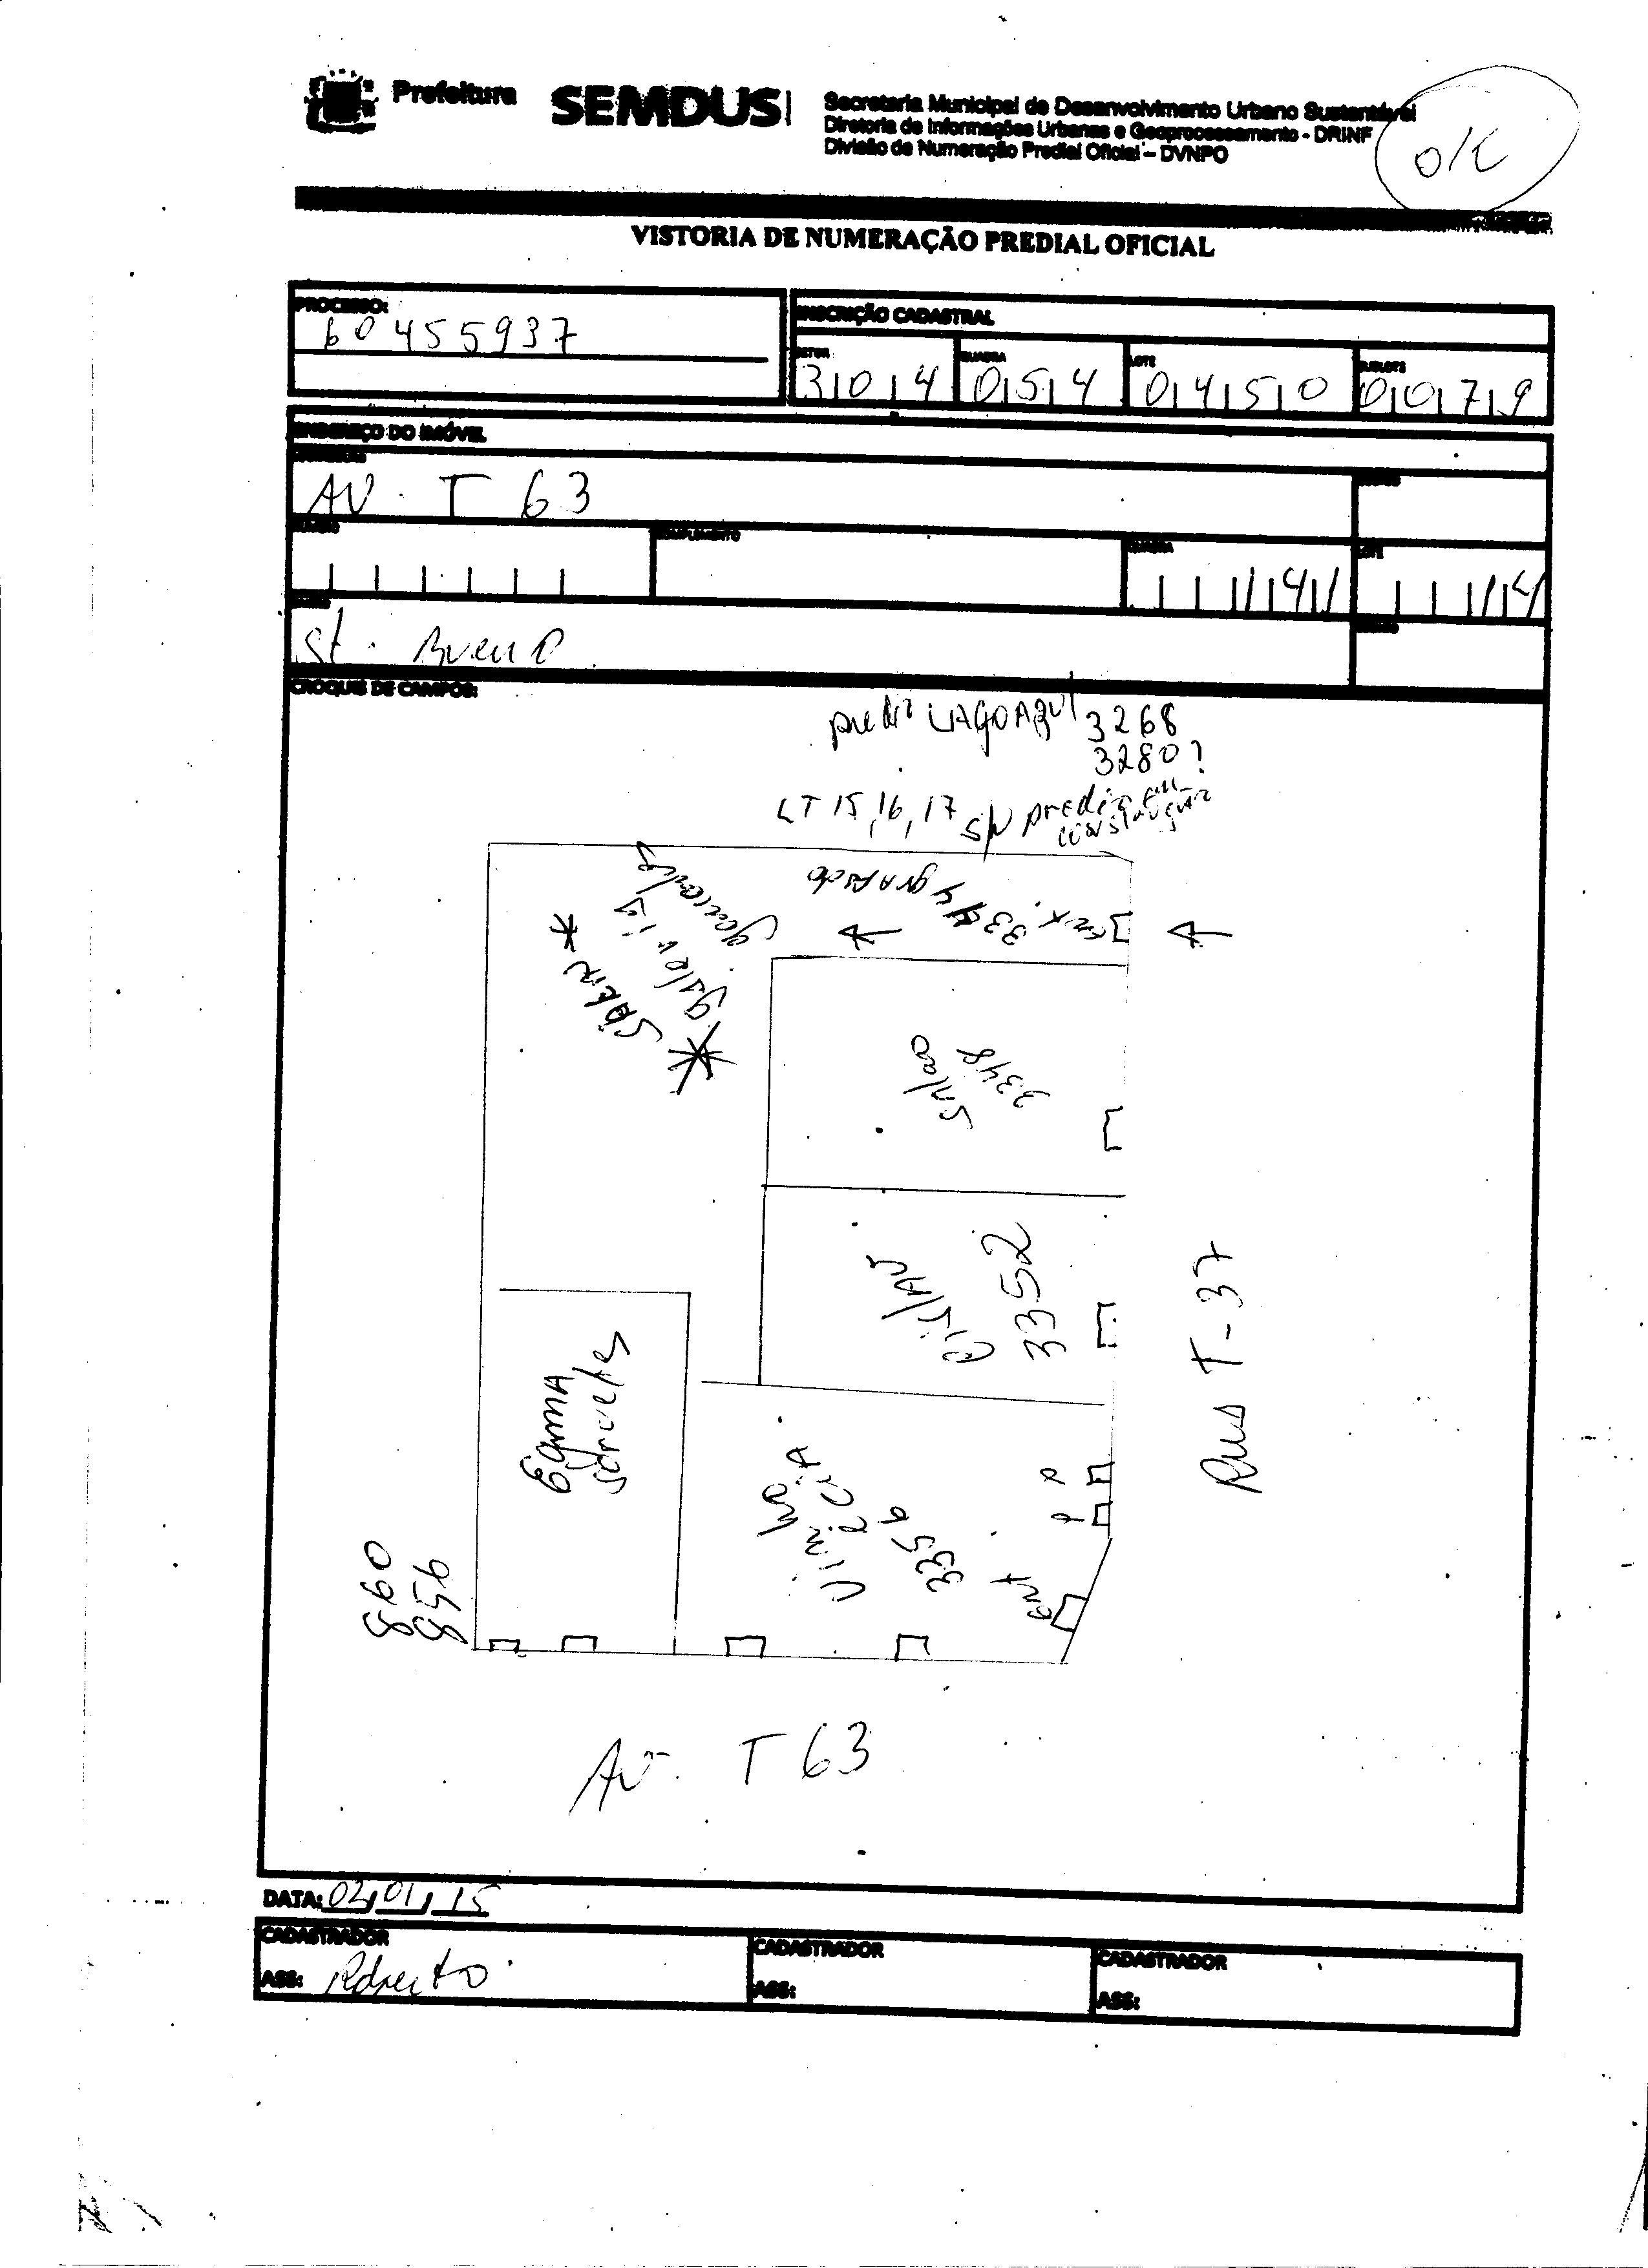 Prefeitura
SEMDUS
Secretaria Municipal de Desenvolvimento Urbano Sustentável
Diretoria de Informações Urbanas e Geoprocessamento - DRINF
Divisão de Numeração Predial Oficial - DVNPO
OK
VISTORIA DE NUMERAÇÃO PREDIAL OFICIAL
PROCESSO:
60455937
INSCRIÇÃO CADASTRAL
SETOR QUADRA LOTE SUBLOTE
304 054 0450 0079
ENDEREÇO DO IMÓVEL
AV. T 63
COMPLEMENTO QUADRA LOTE
141 14
St. Bueno
CROQUIS DE CAMPOS:
LAGO AZUL 3268
3280?
LT 15, 16, 17 S/N predio em
construção
3344 gravado
galeria
SABIN
Salão
3348
3352
Egma
sorvetes
3356
ent
860
856
Rua T-37
AV. T 63
DATA: 02/01/15
CADASTRADOR CADASTRADOR CADASTRADOR
ASS: Roberto ASS: ASS: